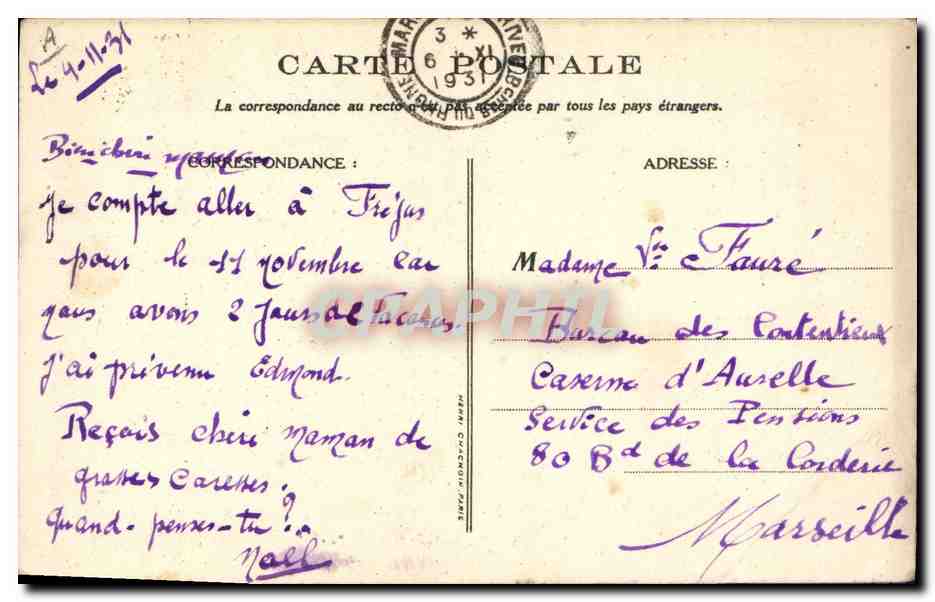 A
Le 4-11-31
MARSEILLE
3 *
6 XI
1931
BCHES DU RHONE
CARTE POSTALE
La correspondance au recto n'est pas acceptée par tous les pays étrangers.
CORRESPONDANCE :
Bien chère maman
je compte aller à Fréjus
pour le 11 novembre car
nous avons 2 jours de
J'ai prévenu Edmond.
Reçois chère maman de
grosses caresses.
Quand-penses-tu?..
Noël
HENRI CHACHOIN PARIS
ADRESSE :
Madame Vve Fauré
Bureau des Contentieux
Caserne d'Aurelle
Service des Pensions
80 Bd de la Corderie
Marseille
CPAPHIL